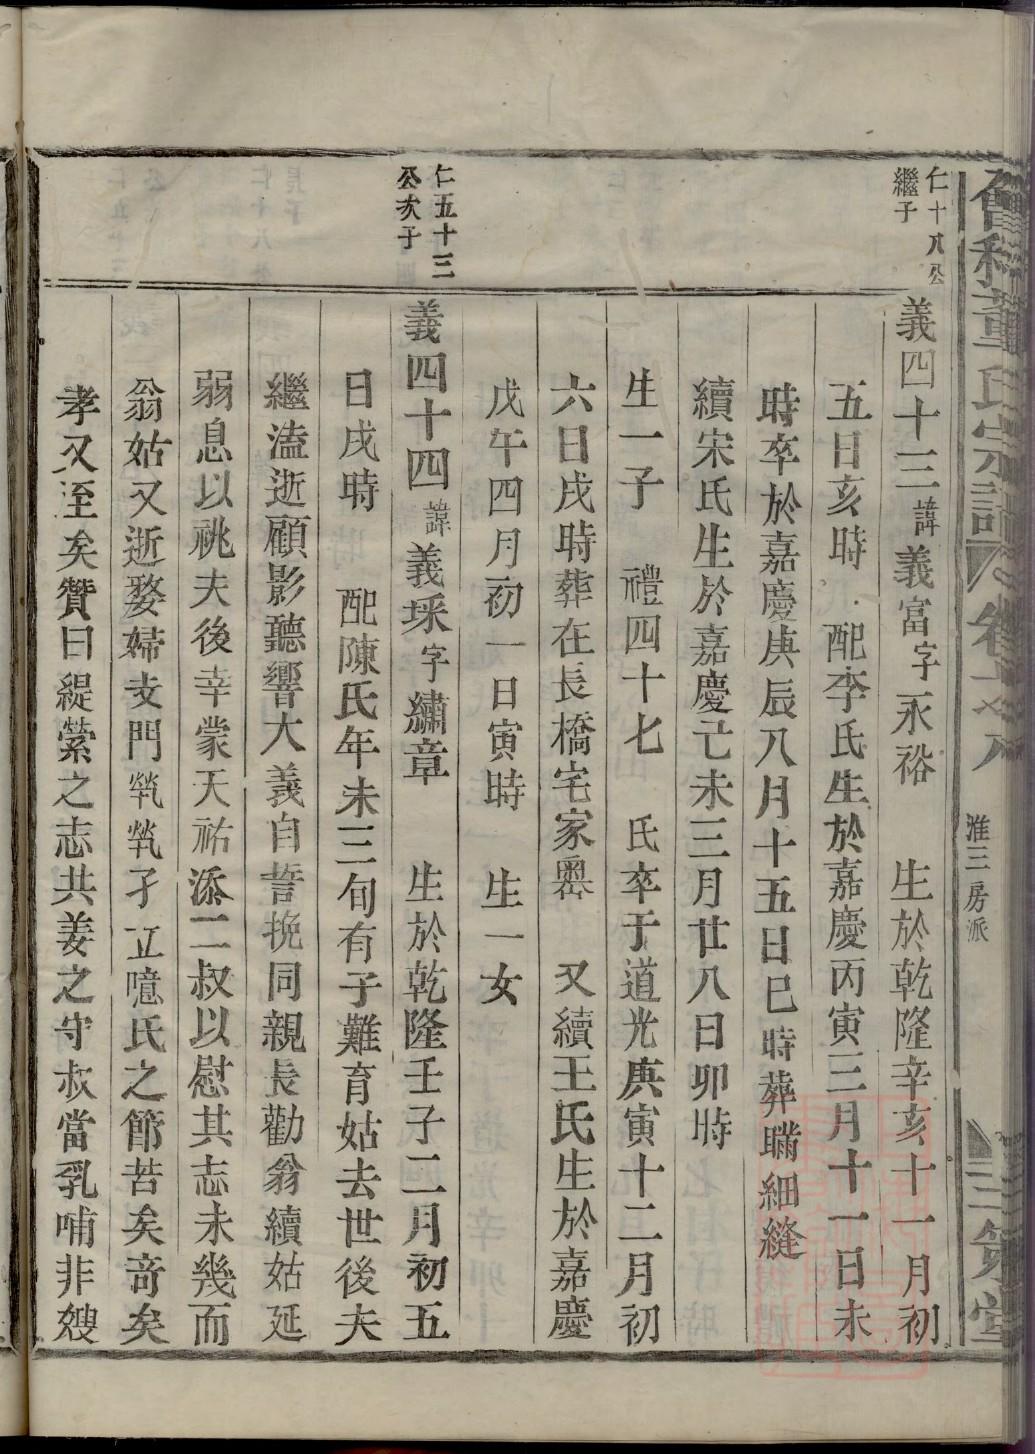 會稽董氏宗譜 卷之八 淮三房派 三策堂
仁十八公
繼子
義四十三諱義富字永裕 生於乾隆辛亥十一月初
五日亥時 配李氏生於嘉慶丙寅三月十一日未
時卒於嘉慶庚辰八月十五日巳時葬瞞細縫
續宋氏生於嘉慶己未三月廿八日卯時
生一子 禮四十七 氏卒于道光庚寅十二月初
六日戌時葬在長橋宅家嶴 又續王氏生於嘉慶
戊午四月初一日寅時 生一女
仁五十三
公次子
義四十四諱義埰字繡章 生於乾隆壬子二月初五
日戌時 配陳氏年未三旬有子難育姑去世後夫
繼溘逝顧影聽響大義自誓挽同親長勸翁續姑延
弱息以祧夫後幸蒙天祐添二叔以慰其志未幾而
翁姑又逝婺婦支門煢煢孑立噫氏之節苦矣奇矣
孝又至矣贊曰緹縈之志共姜之守叔當乳哺非嫂